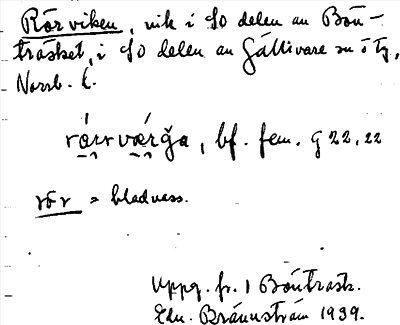 Rörviken, vik i SO delen av Bön-
träsket, i SO delen av Gällivare sn o tg,
Norrb. l.
bf. fem. g 22.22
rör = bladvass.
Uppg. fr. 1 Böntrask.
Edv. Brännström 1939.